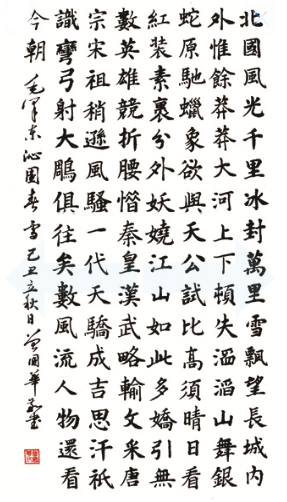 北國風光千里冰封萬里雪飄望長城內
外惟餘莽莽大河上下頓失滔滔山舞銀
蛇原馳蠟象欲與天公試比高須晴日看
紅裝素裹分外妖嬈江山如此多嬌引無
數英雄競折腰惜秦皇漢武略輸文采唐
宗宋祖稍遜風騷一代天驕成吉思汗祇
識彎弓射大鵰俱往矣數風流人物還看
今朝 毛澤东沁園春雪 己丑立秋日曾國華书